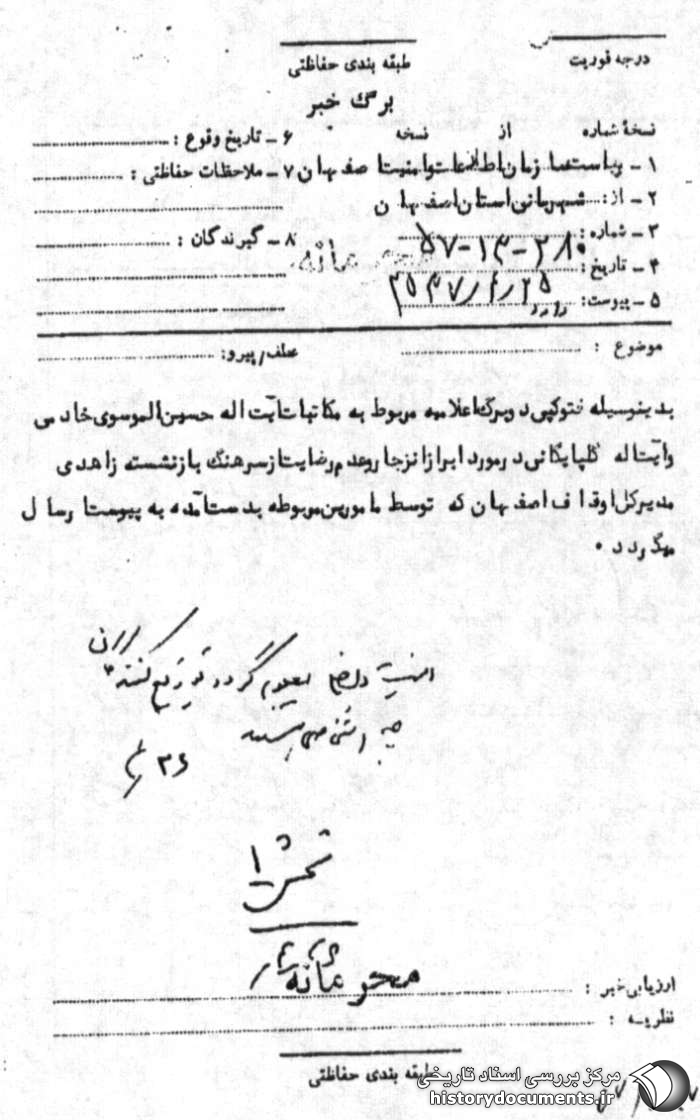 درجه فوریت
طبقه بندی حفاظتی
برگ خبر
نسخهٔ شماره از نسخه
۱ - ریاست سازمان اطلاعات و امنیت اصفهان
۲ - از: شهربانی استان اصفهان
۳ - شماره: ۲۸۰-۱۳-۵۷
۴ - تاریخ: ۲۵
۵ - پیوست: دارد
۶ - تاریخ وقوع :
۷ - ملاحظات حفاظتی :
۸ - گیرندگان :
محرمانه
موضوع :
عطف/پیرو:
بدینوسیله فتوکپی دوبرگ اعلامیه مربوط به مکاتبات آیت اله حسین الموسوی خادمی
وآیت اله گلپایگانی در مورد ابراز انزجار و عدم رضایت از سرهنگ بازنشسته زاهدی
مدیرکل اوقاف اصفهان که توسط مامورین مربوطه بدست آمده به پیوست ارسال
میگردد .
معلوم گردد توزیع کنندگان
چه اشخاصی هستند
بخش ۱
محرمانه
ارزیابی خبر :
نظریه :
طبقه بندی حفاظتی
مرکز بررسی اسناد تاریخی
historydocuments.ir